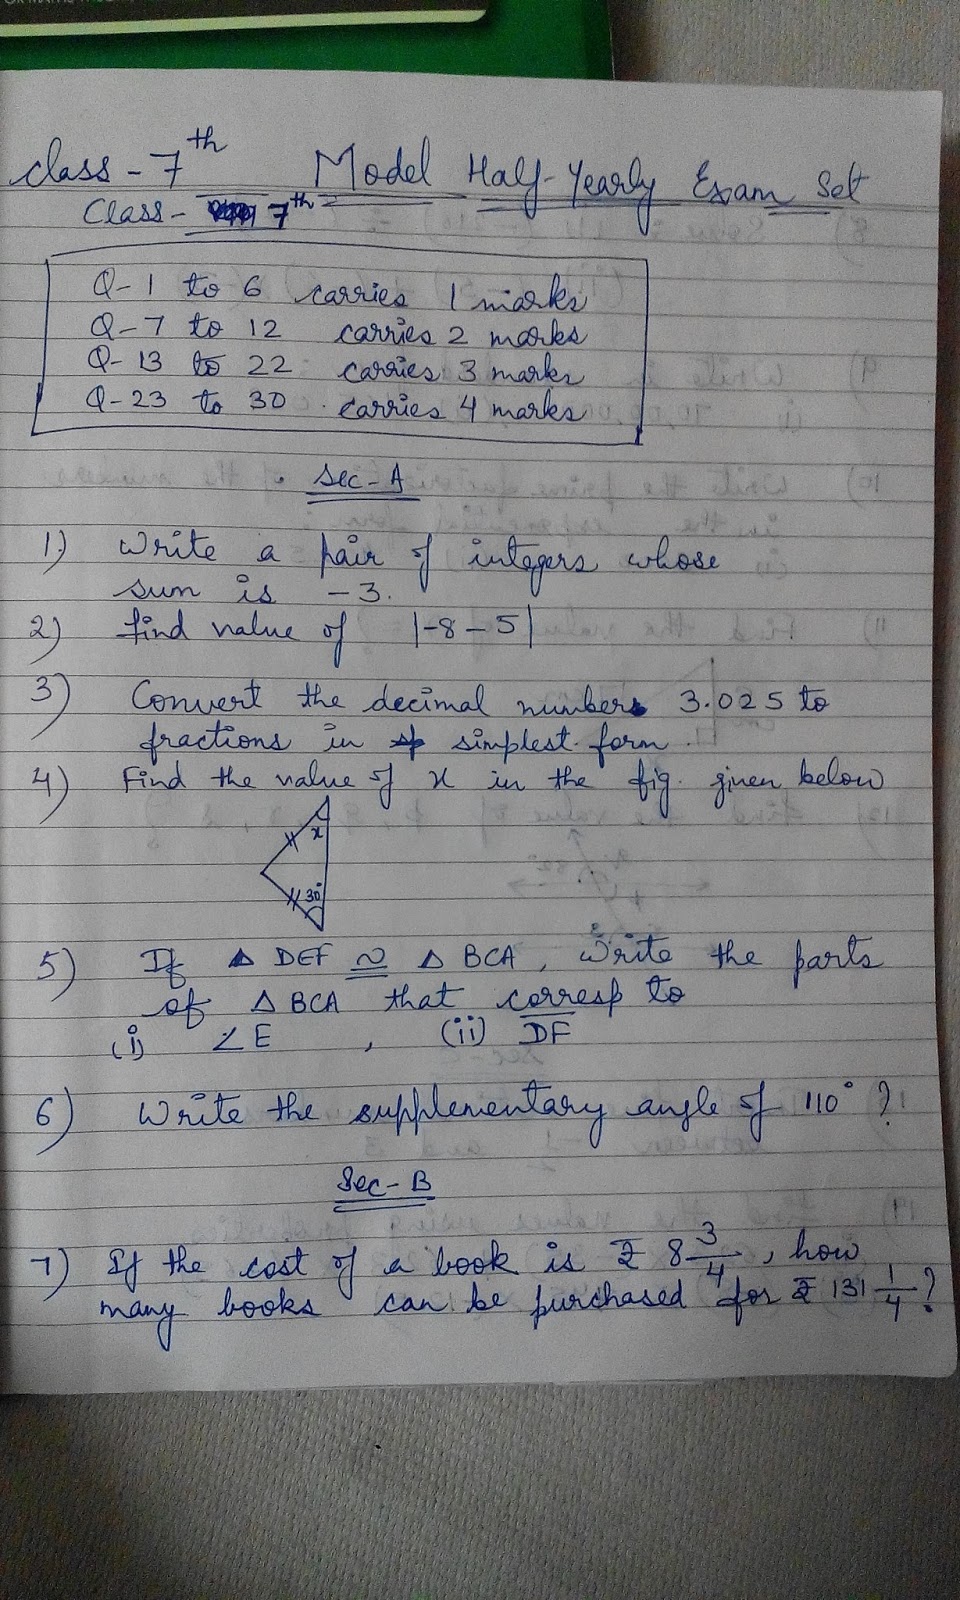 class - 7th Model Half-Yearly Exam Set
Class - 7th
Q-1 to 6 carries 1 marks
Q-7 to 12 carries 2 marks
Q-13 to 22 carries 3 marks
Q-23 to 30 carries 4 marks
Sec-A
1) Write a pair of integers whose
sum is -3.
2) find value of |-8-5|
3) Convert the decimal numbers 3.025 to
fractions in simplest form.
4) Find the value of x in the fig. given below
x
30°
5) If △ DEF ≅ △ BCA, Write the parts
of △ BCA that corresp to
(i) ∠E , (ii) D̅F̅
6) Write the supplementary angle of 110° ?
Sec-B
7) If the cost of a book is ₹ 8 3/4, how
many books can be purchased for ₹ 131 1/4 ?